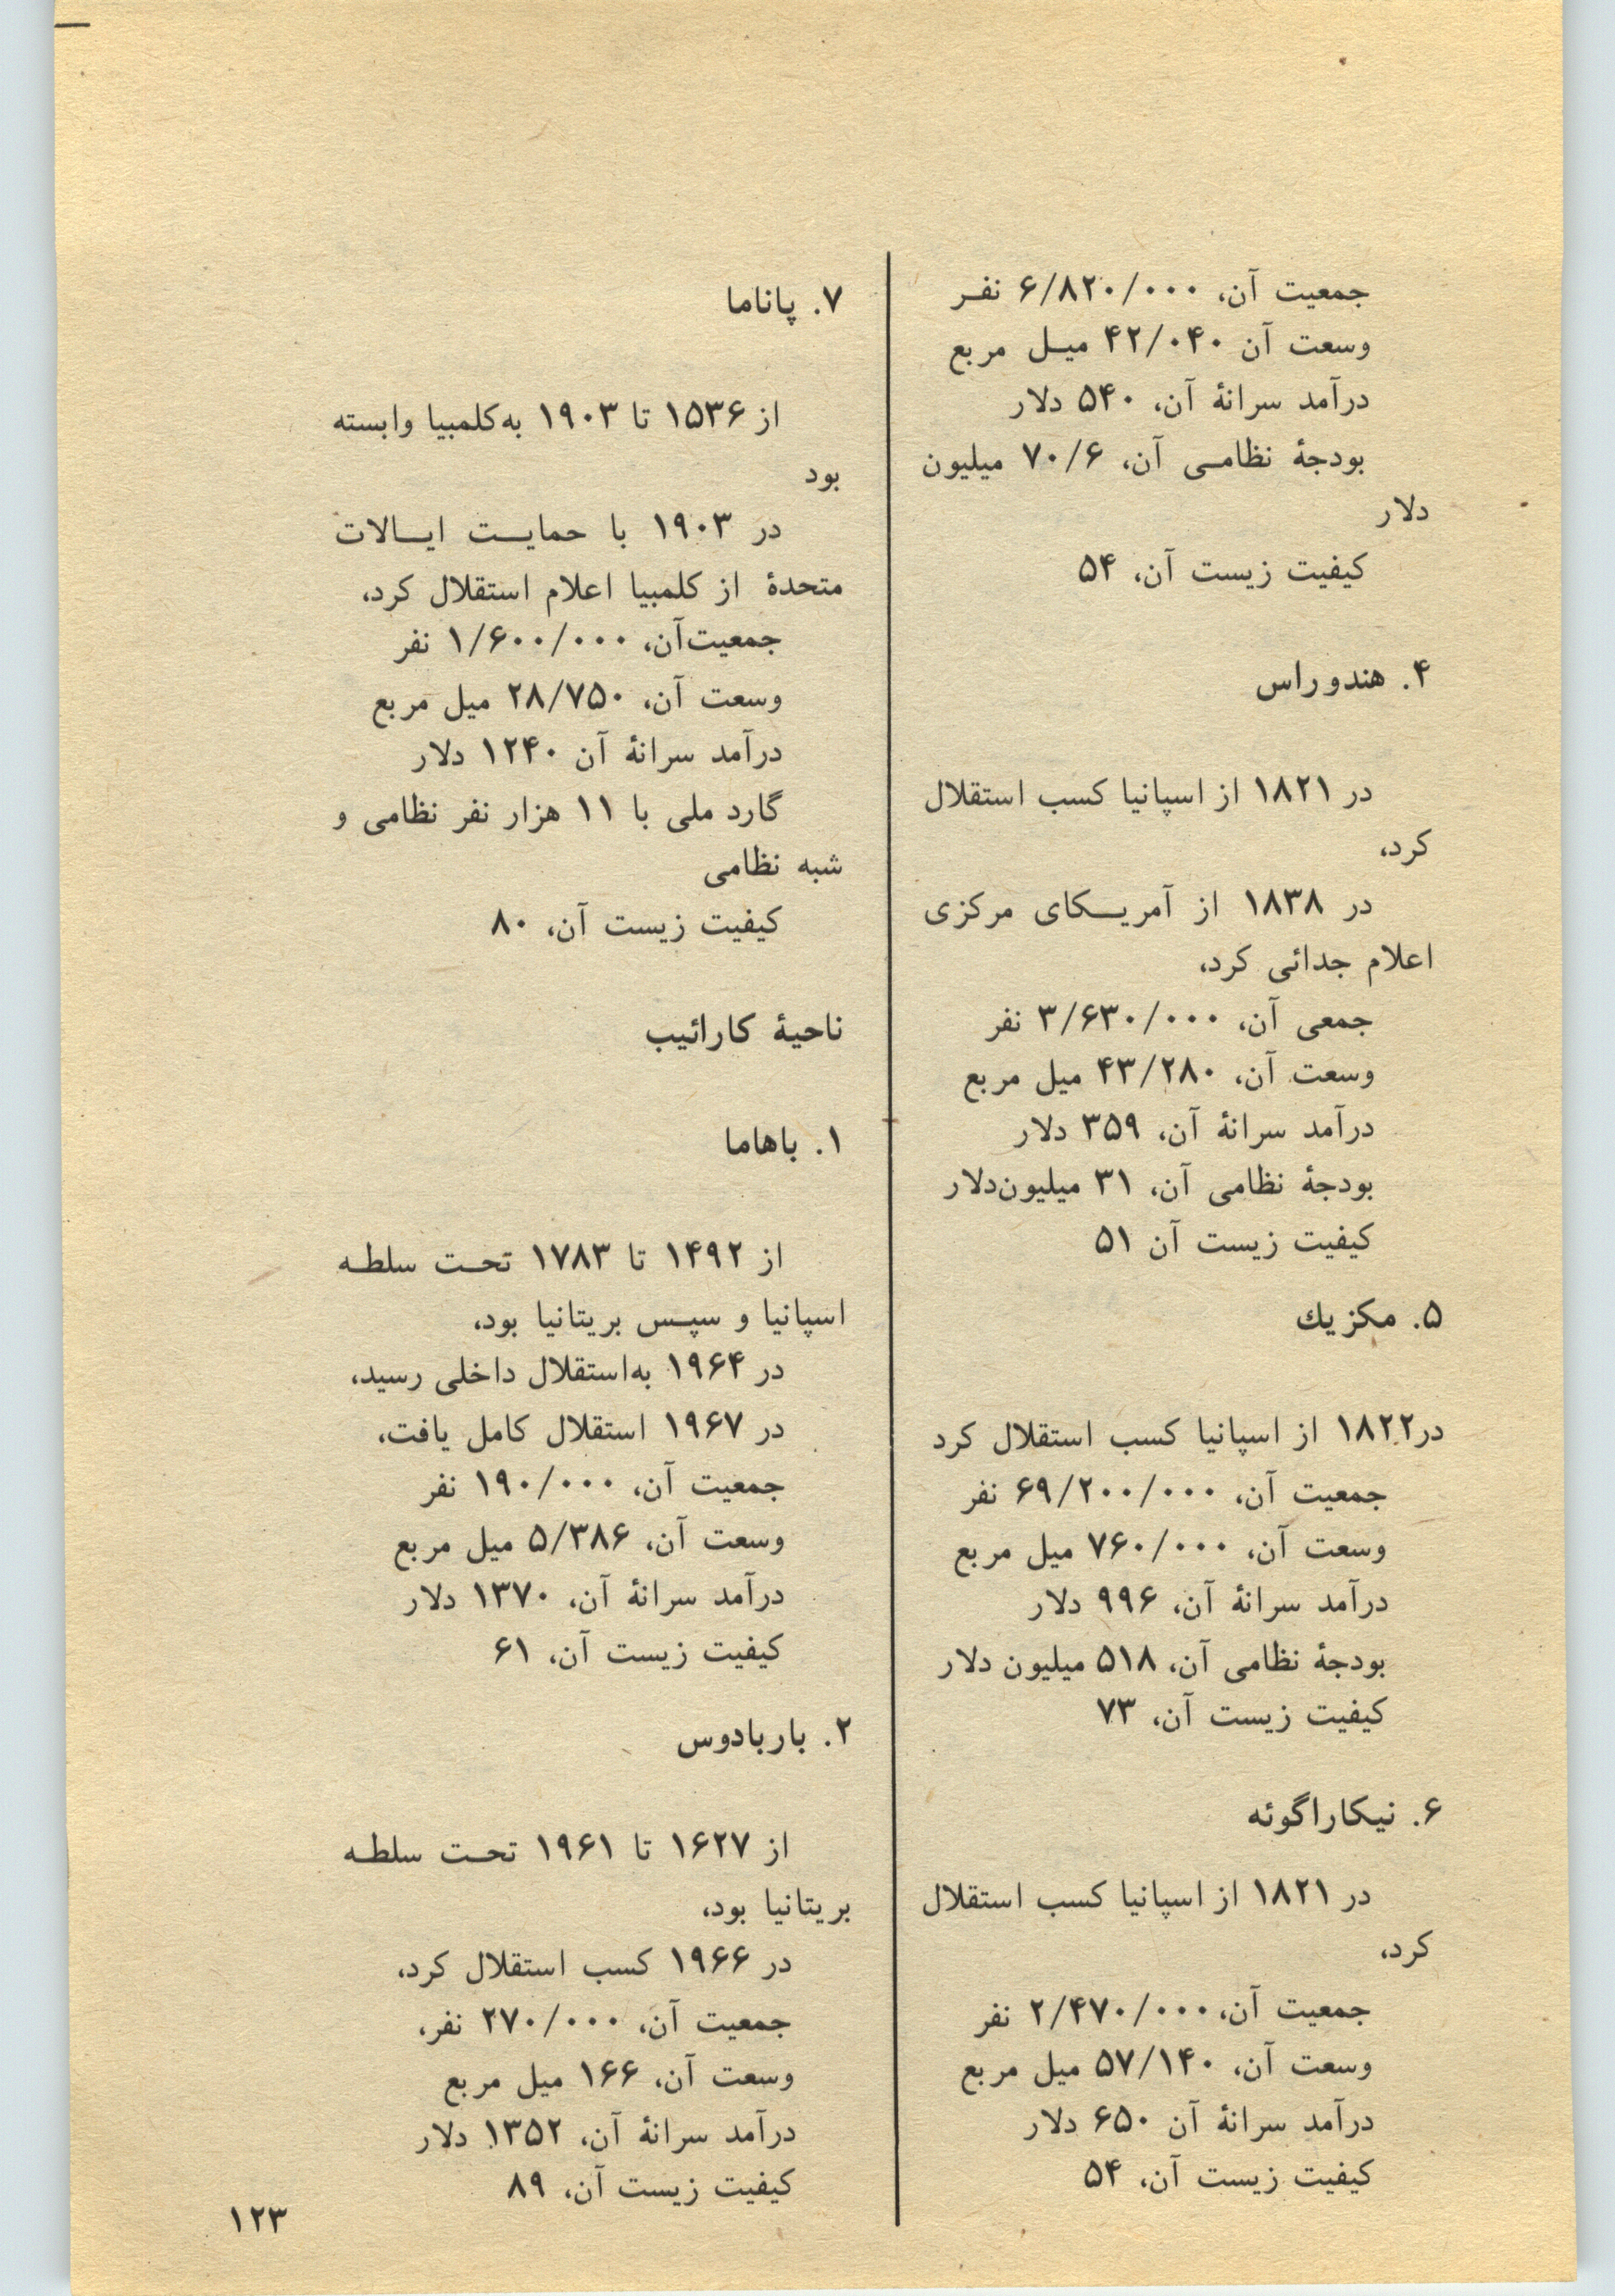 جمعیت آن، ۶/۸۲۰/۰۰۰ نفـر
وسعت آن ۴۲/۰۴۰ میـل مربع
درآمد سرانهٔ آن، ۵۴۰ دلار
بودجهٔ نظامـی آن، ۷۰/۶ میلیون
دلار
کیفیت زیست آن، ۵۴
۴. هندوراس
در ۱۸۲۱ از اسپانیا کسب استقلال
کرد،
در ۱۸۳۸ از آمریـکای مرکزی
اعلام جدائی کرد،
جمعی آن، ۳/۶۳۰/۰۰۰ نفر
وسعت آن، ۴۳/۲۸۰ میل مربع
درآمد سرانهٔ آن، ۳۵۹ دلار
بودجهٔ نظامی آن، ۳۱ میلیون‌دلار
کیفیت زیست آن ۵۱
۵. مکزیك
در۱۸۲۲ از اسپانیا کسب استقلال کرد
جمعیت آن، ۶۹/۲۰۰/۰۰۰ نفر
وسعت آن، ۷۶۰/۰۰۰ میل مربع
درآمد سرانهٔ آن، ۹۹۶ دلار
بودجهٔ نظامی آن، ۵۱۸ میلیون دلار
کیفیت زیست آن، ۷۳
۶. نیکاراگوئه
در ۱۸۲۱ از اسپانیا کسب استقلال
کرد،
جمعیت آن، ۲/۴۷۰/۰۰۰ نفر
وسعت آن، ۵۷/۱۴۰ میل مربع
درآمد سرانهٔ آن ۶۵۰ دلار
کیفیت زیست آن، ۵۴
۷. پاناما
از ۱۵۳۶ تا ۱۹۰۳ به‌کلمبیا وابسته
بود
در ۱۹۰۳ با حمایـت ایـالات
متحدهٔ از کلمبیا اعلام استقلال کرد،
جمعیت‌آن، ۱/۶۰۰/۰۰۰ نفر
وسعت آن، ۲۸/۷۵۰ میل مربع
درآمد سرانهٔ آن ۱۲۴۰ دلار
گارد ملی با ۱۱ هزار نفر نظامی و
شبه نظامی
کیفیت زیست آن، ۸۰
ناحیهٔ کارائیب
۱. باهاما
از ۱۴۹۲ تا ۱۷۸۳ تحـت سلطـه
اسپانیا و سپـس بریتانیا بود،
در ۱۹۶۴ به‌استقلال داخلی رسید،
در ۱۹۶۷ استقلال کامل یافت،
جمعیت آن، ۱۹۰/۰۰۰ نفر
وسعت آن، ۵/۳۸۶ میل مربع
درآمد سرانهٔ آن، ۱۳۷۰ دلار
کیفیت زیست آن، ۶۱
۲. باربادوس
از ۱۶۲۷ تا ۱۹۶۱ تحـت سلطـه
بریتانیا بود،
در ۱۹۶۶ کسب استقلال کرد،
جمعیت آن، ۲۷۰/۰۰۰ نفر،
وسعت آن، ۱۶۶ میل مربع
درآمد سرانهٔ آن، ۱۳۵۲ دلار
کیفیت زیست آن، ۸۹
۱۲۳